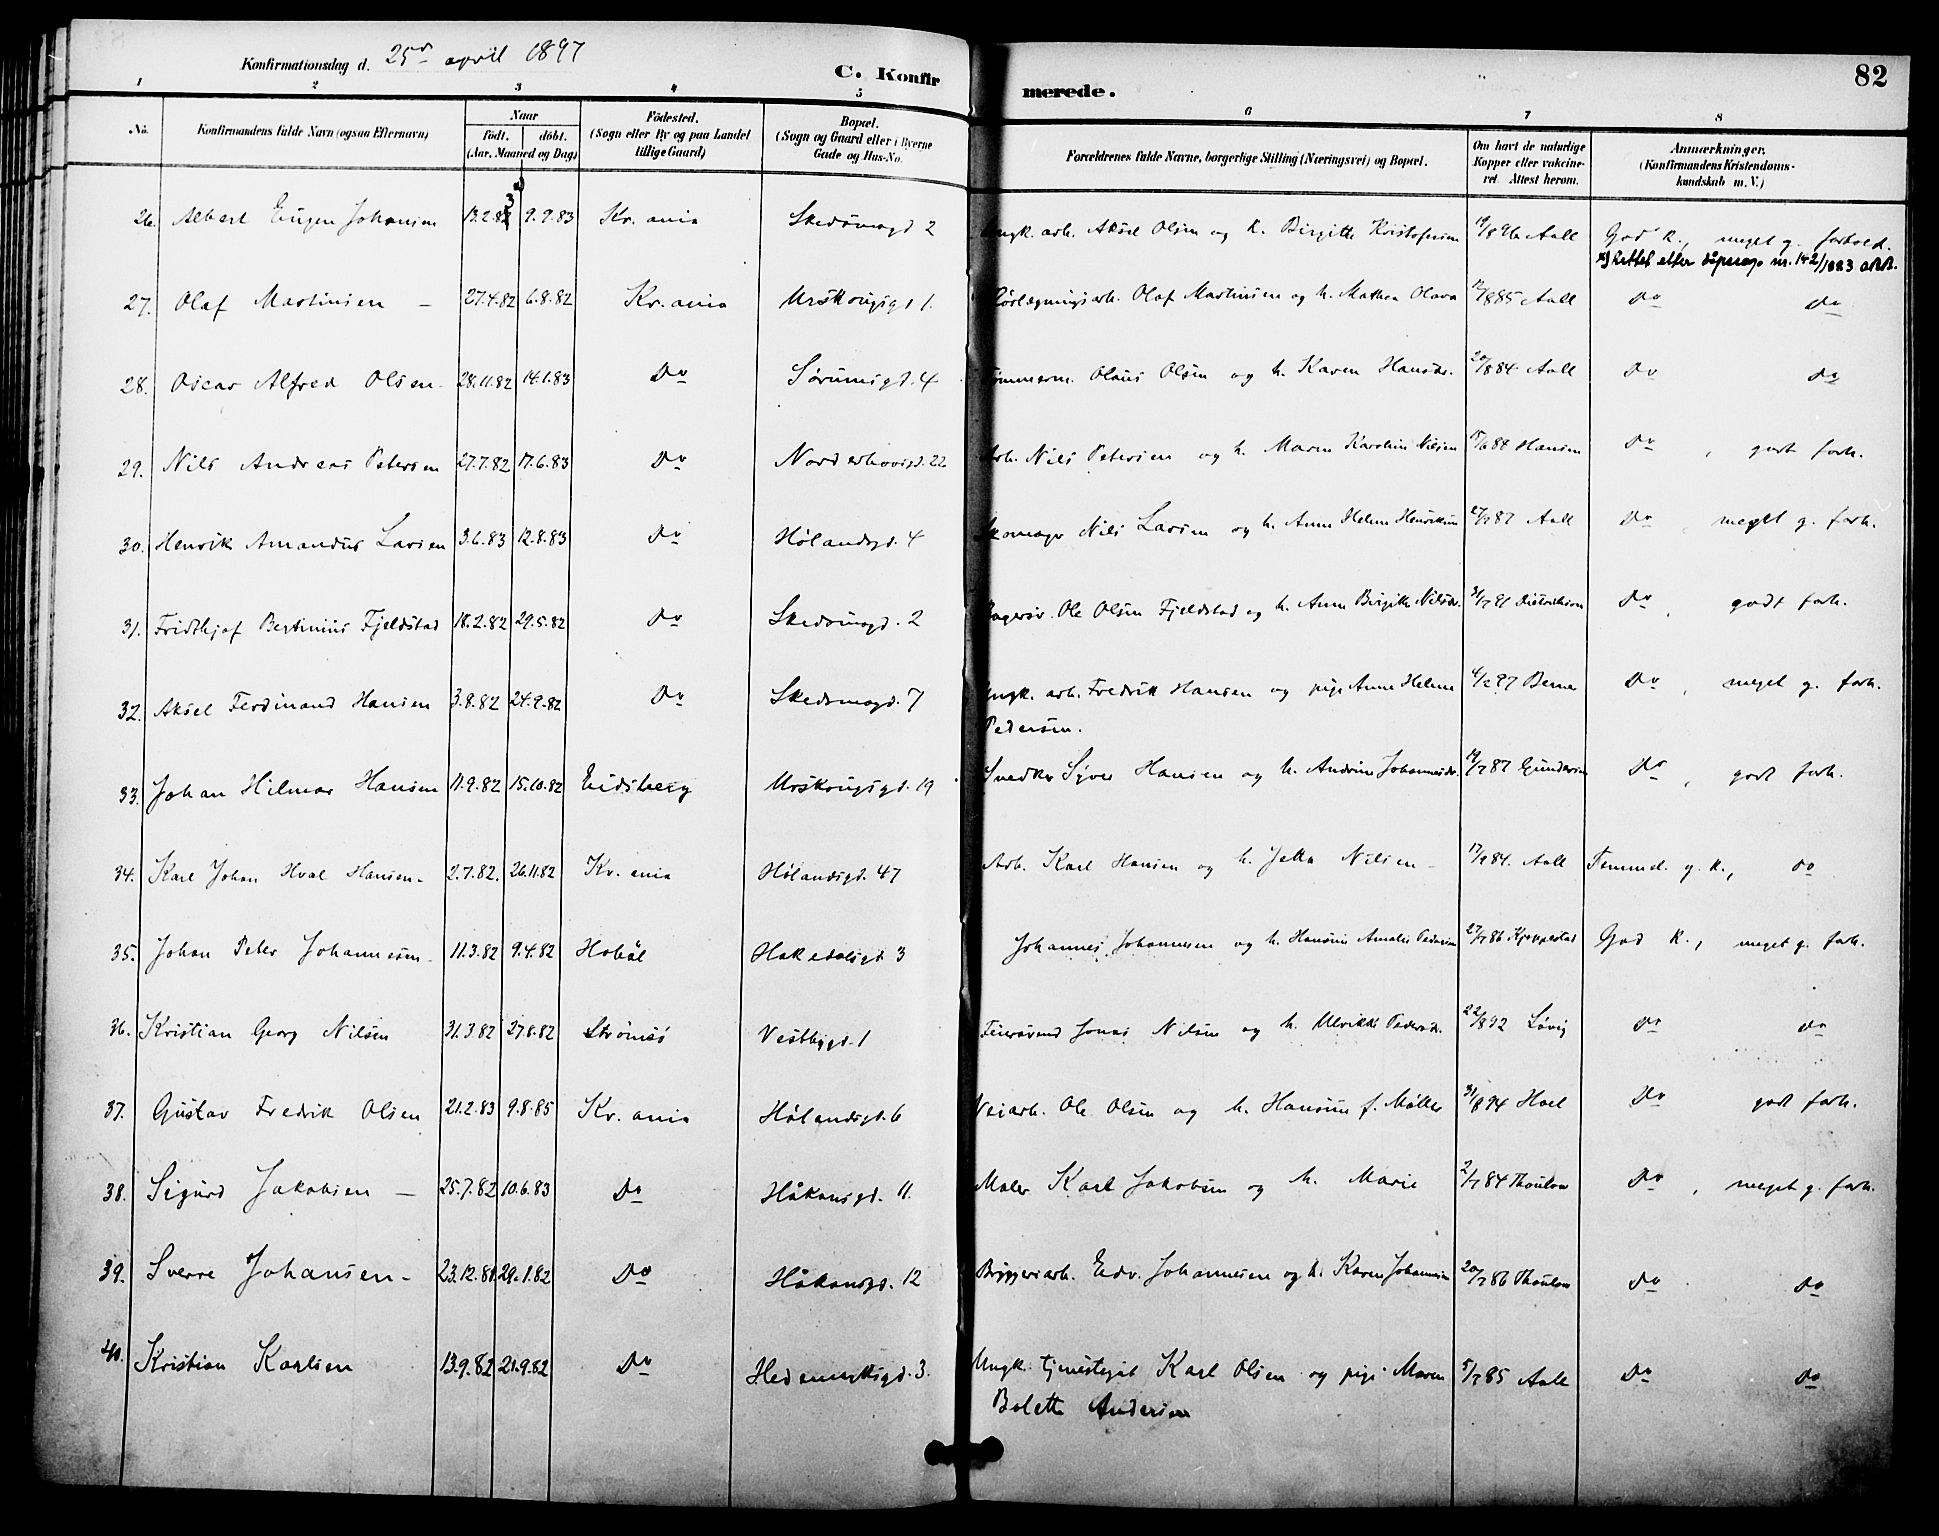 Konfirmationsdag d. 25de april 1897
C. Konfirmerede.
82
1 2 3 4 5 6 7 8
No.
Konfirmandens fulde Navn (ogsaa Efternavn)
Naar
födt. döbt.
(Aar, Maaned og Dag)
Födested.
(Sogn eller By og paa Landet
tillige Gaard)
Bopæl.
(Sogn og Gaard eller i Byerne
Gade og Hus-No.
Forældrenes fulde Navne, borgerlige Stilling (Næringsvei) og Bopæl.
Om havt de naturlige
Kopper eller vakcine-
ret. Attest herom.
Anmærkninger.
(Konfirmandens Kristendoms-
kundskab m. V.)
26. Albert Eugen Johansen 13.2.83 9.9.83 Kr.ania Skedsmogd 2 Ungk. arb. Aksel Olsen og h. Birgitte Kristofersen 19/8 96 Aall God k., meget g. forhold.
x) Rettet etter dåpsreg. nr. 142/1883
27. Olaf Martinsen – 27.4.82 6.8.82 Kr.ania Urskougsgd 1. Rørlægningsarb. Olaf Martinsen og h. Mathea Olava 12/8 85 Aall Do do
28. Oscar Alfred Olsen 28.11.82 14.1.83 Do Sørumsgd. 4 Tømmerm. Olaus Olsen og h. Karen Hansdr. 20/8 84 Aall Do do
29. Nils Andreas Petersen 27.7.82 17.6.83 Do Norderhovsgd. 22 Arb. Nils Petersen og h. Maren Karoline Nilsen 17/6 84 Hansen Do, godt forh.
30. Henrik Amandus Larsen 3.6.83 12.8.83 Do Hølandsgd. 4 Skomager Nils Larsen og h. Anne Helene Henriksen 27/7 87 Aall Do, meget g. forh.
31. Fridthjof Bertinius Fjeldstad 18.2.82 29.5.82 Do Skedsmogd. 2 Bagersv. Ole Olsen Fjeldstad og h. Anne Birgitte Nilsdr. 31/7 91 Dietrichson Do, godt forh.
32. Aksel Ferdinand Hansen 3.8.82 24.9.82 Do Skedsmogd. 7 Ungk. arb. Fredrik Hansen og pige Anne Helene 4/2 97 Berner Do, meget g. forh.
Pedersen.
33. Johan Hilmar Hansen 11.9.82 15.10.82 Eidsberg Urskougsgd. 19 Snedker Syver Hansen og h. Andrine Johannesdr. 19/7 87 Gundersen Do, godt forh.
34. Karl Johan Hval Hansen 2.7.82. 26.11.82 Kr.ania Hølandsgd. 47 Arb. Karl Hansen og h. Jetta Nilsen – 17/9 84. Aall Temmel. g. k., do
35. Johan Peter Johannesen 11.3.82 9.4.82 Hobøl Hakedalsgd 3 Johannes Johannesen og h. Hansine Amalie Pedersen 27/7 86 Kjoppestad God k., meget g. forh.
36. Kristian Georg Nilsen 31.3.82 27.8.82 Strømsö Vestbygd. 1 Feiersvend Jonas Nilsen og h. Ulrikke Pedersdr. 22/8 92 Løvig Do do
37. Gustav Fredrik Olsen 21.2.83 9.8.85 Kr.ania Hølandsgd. 6 Veiarb. Ole Olsen og h. Hansine f. Møller 31/8 94 Hoel Do godt forh.
38. Sigurd Jakobsen – 25.7.82 10.6.83 Do Håkonsgd. 11. Maler Karl Jakobsen og h. Marie 2/7 84 Thoulow Do, meget g. forh.
39. Sverre Johansen – 23.12.81 29.1.82 Do Håkonsgd. 12 Bryggeriarb. Edv. Johannesen og h. Karen Johannesen 20/7 86 Thoulow Do do
40. Kristian Karlsen 13.9.82 21.9.82 Do Hedemarksgd. 3. Ungk. tjenestegut Karl Olsen og pige Maren 5/7 85 Aall Do do
Bolette Andersen